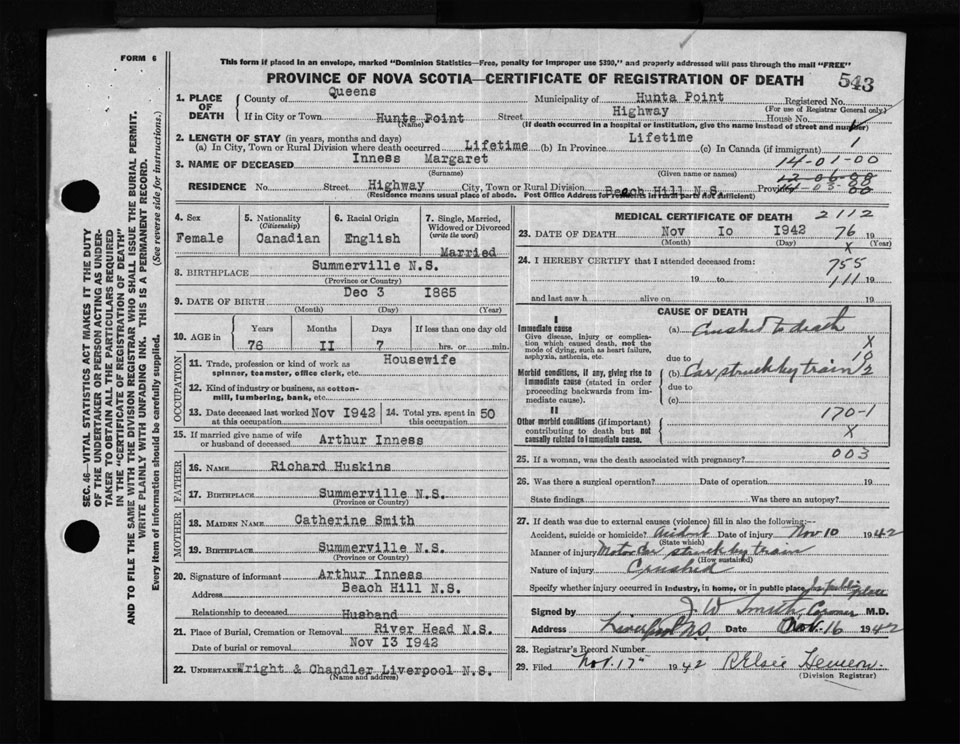 FORM 6
This form if placed in an envelope, marked "Dominion Statistics—Free, penalty for improper use $300," and properly addressed will pass through the mail "FREE"
PROVINCE OF NOVA SCOTIA—CERTIFICATE OF REGISTRATION OF DEATH 543
1. PLACE OF DEATH
County of Queens Municipality of Hunts Point Registered No.
(For use of Registrar General only)
If in City or Town Hunts Point Street Highway House No.
(Name) (If death occurred in a hospital or institution, give the name instead of street and number)
2. LENGTH OF STAY (in years, months and days)
(a) In City, Town or Rural Division where death occurred Lifetime (b) In Province Lifetime (c) In Canada (if immigrant) 1
3. NAME OF DECEASED Inness Margaret 14-01-00
(Surname) (Given name or names)
RESIDENCE No. Street Highway City, Town or Rural Division Beach Hill N.S. Province
(Residence means usual place of abode. Post Office Address for residents in rural parts not sufficient)
4. Sex Female
5. Nationality (Citizenship) Canadian
6. Racial Origin English
7. Single, Married, Widowed or Divorced (write the word) Married
8. BIRTHPLACE Summerville N.S.
(Province or Country)
9. DATE OF BIRTH Dec 3 1865
(Month) (Day) (Year)
10. AGE in Years 76 Months II Days 7 If less than one day old hrs. or min.
OCCUPATION
11. Trade, profession or kind of work as spinner, teamster, office clerk, etc. Housewife
12. Kind of industry or business, as cotton-mill, lumbering, bank, etc.
13. Date deceased last worked at this occupation Nov 1942 14. Total yrs. spent in this occupation 50
15. If married give name of wife or husband of deceased Arthur Inness
FATHER
16. NAME Richard Huskins
17. BIRTHPLACE Summerville N.S.
(Province or Country)
MOTHER
18. MAIDEN NAME Catherine Smith
19. BIRTHPLACE Summerville N.S.
(Province or Country)
20. Signature of informant Arthur Inness
Address Beach Hill N.S.
Relationship to deceased Husband
21. Place of Burial, Cremation or Removal River Head N.S.
Date of burial or removal Nov I3 1942
22. UNDERTAKER Wright & Chandler Liverpool N.S.
(Name and address)
MEDICAL CERTIFICATE OF DEATH 2112
23. DATE OF DEATH Nov Io 1942 76 19
(Month) (Day) (Year)
X
24. I HEREBY CERTIFY that I attended deceased from: 755
19 to 111 19
and last saw h alive on 19
CAUSE OF DEATH
I
Immediate cause
Give disease, injury or complication which caused death, not the mode of dying, such as heart failure, asphyxia, asthenia, etc.
(a) Crushed to death
X
due to 10
Morbid conditions, if any, giving rise to immediate cause (stated in order proceeding backwards from immediate cause).
(b) Car struck by train 2
due to
(c)
II
Other morbid conditions (if important) contributing to death but not causally related to immediate cause.
170-1
X
25. If a woman, was the death associated with pregnancy? 003
26. Was there a surgical operation? Date of operation 19
State findings Was there an autopsy?
27. If death was due to external causes (violence) fill in also the following:—
Accident, suicide or homicide? Accident Date of injury Nov 10 1942
(State which)
Manner of injury Motor Car struck by train
(How sustained)
Nature of injury Crushed
Specify whether injury occurred in industry, in home, or in public place In public place
Signed by J W Smith, Coroner M.D.
Address Liverpool NS Date Nov. 16 1942
28. Registrar's Record Number
29. Filed Nov. 17th 1942
(Division Registrar)
SEC. 46—VITAL STATISTICS ACT MAKES IT THE DUTY OF THE UNDERTAKER OR PERSON ACTING AS UNDERTAKER TO OBTAIN ALL THE PARTICULARS REQUIRED IN THE "CERTIFICATE OF REGISTRATION OF DEATH"
AND TO FILE THE SAME WITH THE DIVISION REGISTRAR WHO SHALL ISSUE THE BURIAL PERMIT.
WRITE PLAINLY WITH UNFADING INK. THIS IS A PERMANENT RECORD.
Every item of information should be carefully supplied. (See reverse side for instructions.)